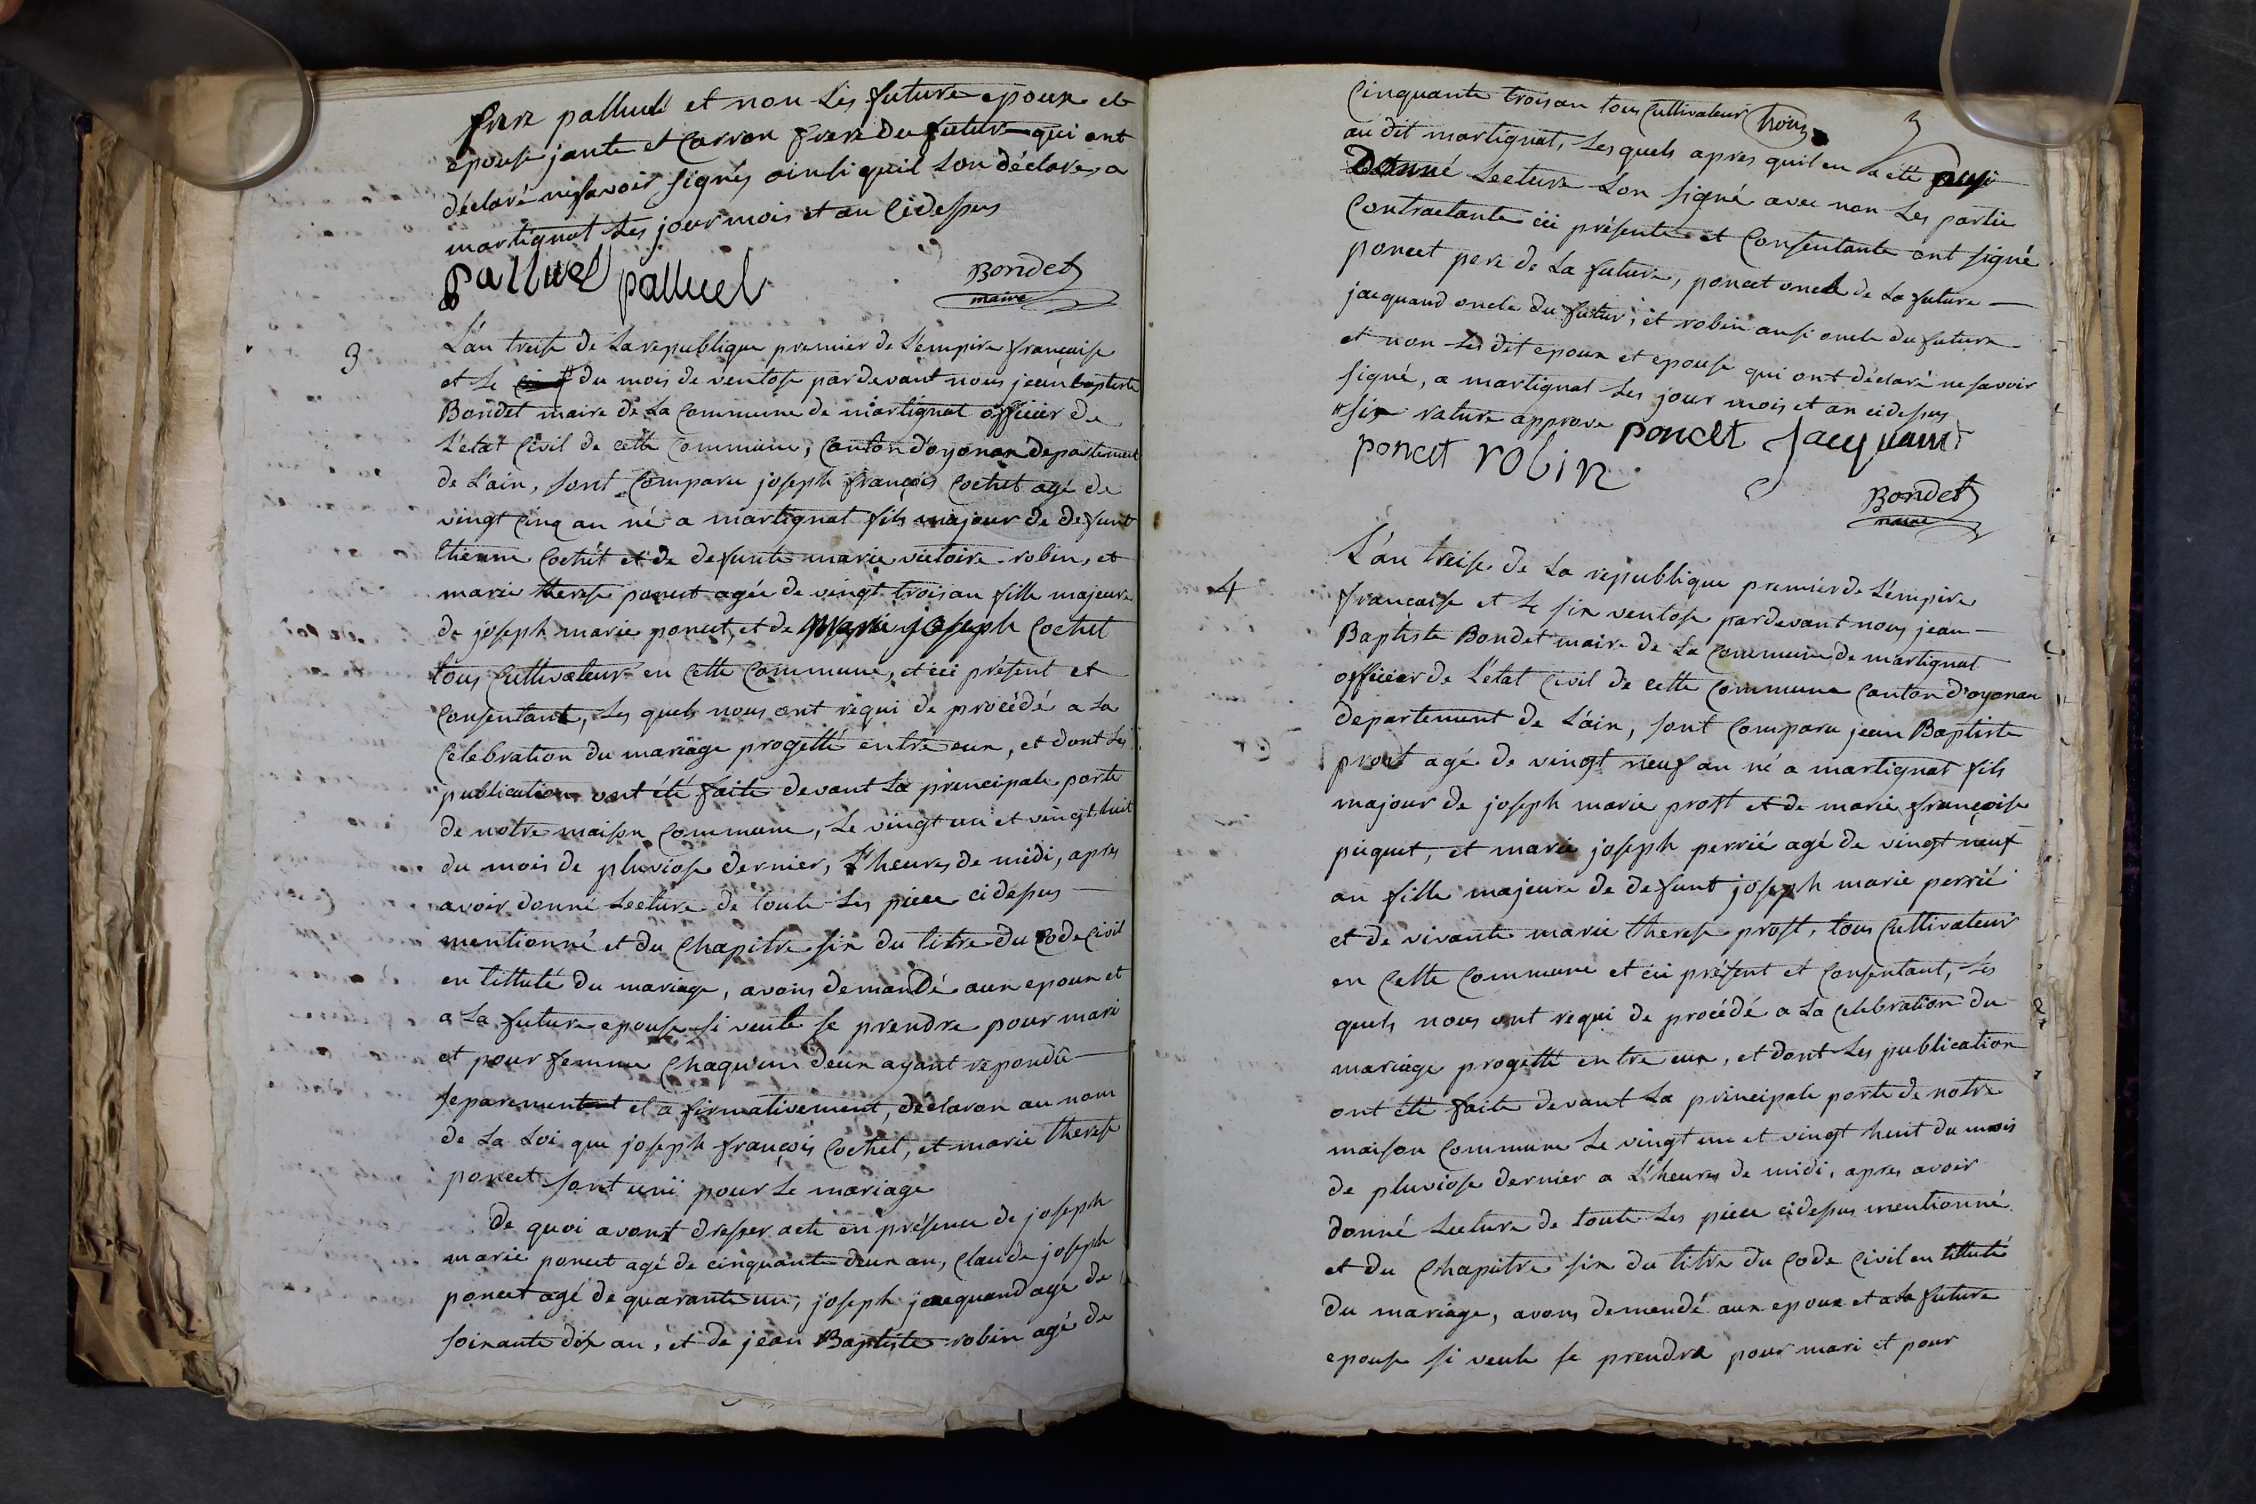 frere palluel et non les future epoux et
epouse jante et Carron frere du future qui ont
déclaré ne savoir signés ainsi quil lon déclarés a
martignat les jour mois et an cidessus
palluel palluel
Bondet
maire
3
L'an treise de La republique premier de L'empire française
et le du mois de ventose pardevant nous jean baptiste
Bondet maire de La Commune de martignat officier de
L'etat Civil de cette Commune, Canton d'oyonan departement
de L'ain, sont Comparu joseph françois Cochet agé de
vingt Cinq an né a martignat fils majour de defunt
Etienne Cochet et de defunte marie victoire robin, et
marie therese poncet agée de vingt trois an fille majeure
de joseph marie poncet, et de marie joseph Cochet
tous Cultivateur en Cette Commune, et ici présent et
Consentant, les quels nous ont réqui de procédé a La
Celebration du mariage progetté entre eux, et dont les
publication ont été faite devant La principale porte
de notre maison Commune, Le vingt un et vingt huit
du mois de pluviose dernier, L'heures de midi, apres
avoir donné Lecture de toute Les piece cidessus
mentionné et du Chapitre six du titre du Code Civil
en tittulé du mariage, avons demandé aux epoux et
a La future epouse si veule se prendre pour mari
et pour femme Chaqu'un deux ayant repondu
separement et a firmativement, déclaron au nom
de La Loi que joseph françois Cochet, et marie therese
poncet sont unï pour Le mariage
De quoi avont dresser acte en présence de joseph
marie poncet agé de cinquante deux an, Claude joseph
poncet agé de quarante un, joseph jacquand agé de
soixante dix an, et de jean Baptiste robin agé de
3
Cinquante trois an tous Cultivateur
au dit martignat, Lesquels apres quil en a ette
Donné Lecture Lon signé avec non Les partie
Contractante ici présente et Consentante ont signé
poncet pere de La future, poncet oncle de La future
jacquand oncle du futur, et robin ausi oncle du future
et non Les dit epoux et epouse qui ont déclaré ne savoir
signé, a martignat Les jour mois et an cidessus
six rature approve poncet Jacquand
poncet robin
Bondet
maire
4
L'an treise de La republique premier de L'empire
francaise et Le six ventose pardevant nous jean
Baptiste Bondet maire de La Commune de martignat
officier de L'état Civil de cette Commune Canton d'oyonan
departement de L'ain, sont Comparu jean Baptiste
prost agé de vingt neuf an né a martignat fils
majour de joseph marie prost et de marie françoise
piquet, et marie joseph perrié agé de vingt neuf
an fille majeure de defunt joseph marie perrié
et de vivante marie therese prost, tous Cultivateur
en Cette Commune et ici présent et Consentant, Les
quels nous ont requi de procédé a La Celebration du
mariage progetté entre eux, et dont Les publication
ont été faite devant La principale porte de notre
maison Commune Le vingt un et vingt huit du mois
de pluviose dernier a L'heures de midi, apres avoir
donné Lecture de toute Les piece cidessus mentionné
et du Chapitre six du titre du Code Civil en tittulé
du mariage, avons demendé aux epoux et a La future
epouse si veule se prendre pour mari et pour